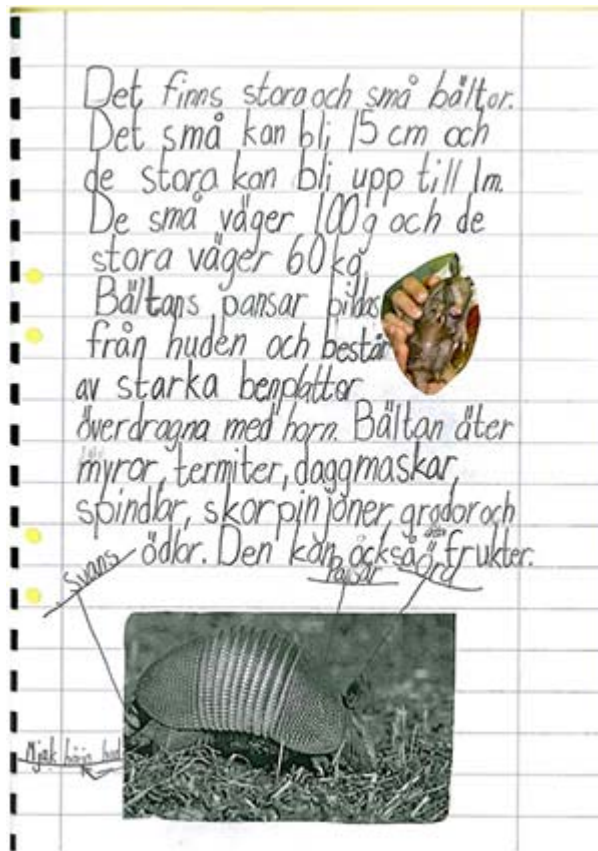 Det finns stora och små bältor.
Det små kan bli 15 cm och
de stora kan bli upp till 1m.
De små väger 100g och de
stora väger 60 kg.
Bältans pansar bildas
från huden och består
av starka benplattor
överdragna med horn. Bältan äter
myror, termiter, daggmaskar,
spindlar, skorpinjoner, grodor och
ödlor. Den kan också äta frukter.
Svans
Pansar
öra
Mjuk hårig hud